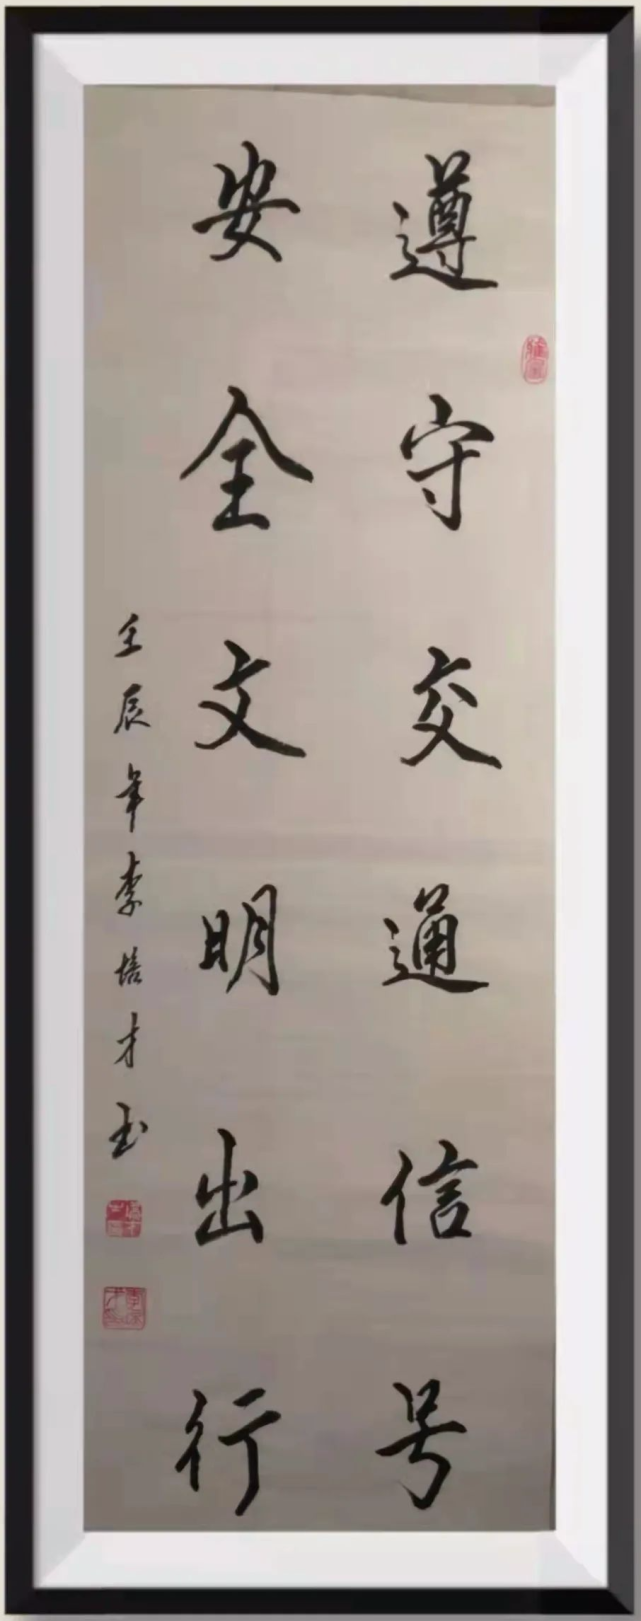 遵守交通信号
安全文明出行
壬辰年李培才书